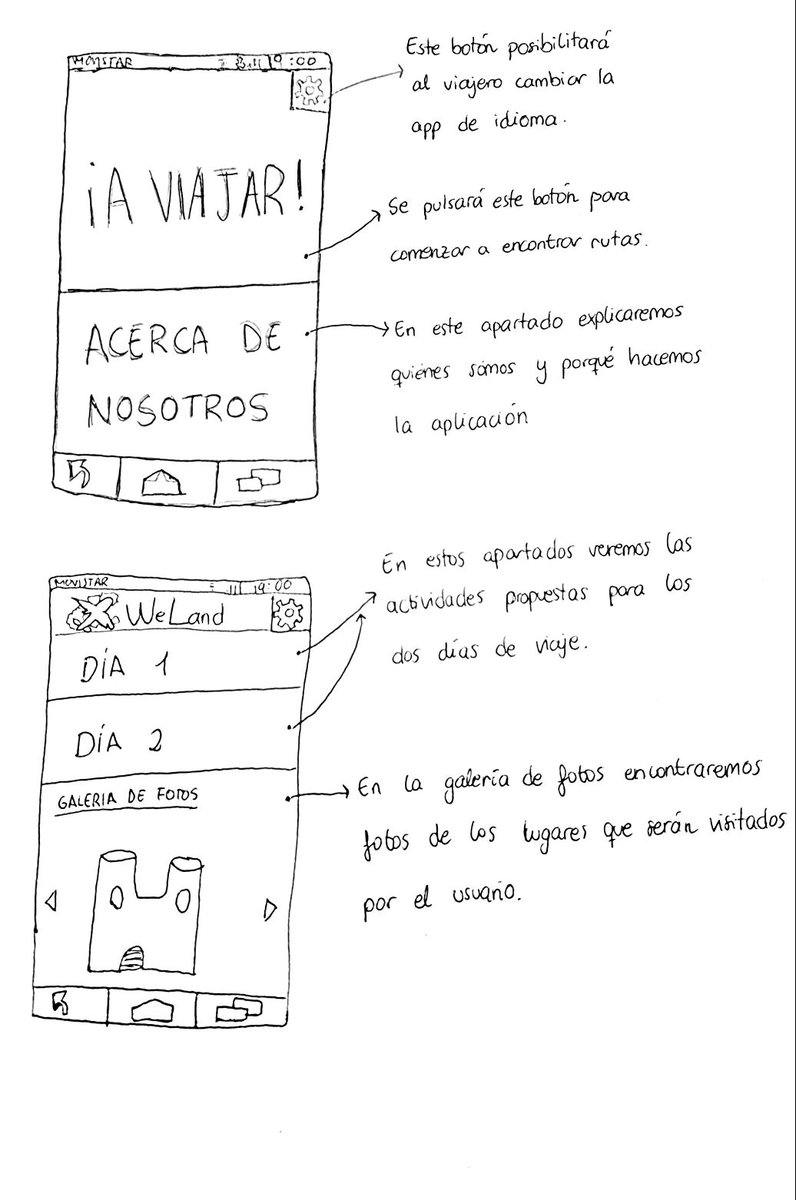 MOVISTAR 19:00
Este botón posibilitará
al viajero cambiar la
app de idioma.
¡A VIAJAR!
Se pulsará este botón para
comenzar a encontrar rutas.
ACERCA DE
NOSOTROS
En este apartado explicaremos
quiénes sómos y porqué hacemos
la aplicación
MOVISTAR 19:00
WeLand
DÍA 1
DÍA 2
En estos apartados veremos las
actividades propuestas para los
dos días de viaje.
GALERIA DE FOTOS
En la galería de fotos encontraremos
fotos de los lugares que serán visitados
por el usuario.